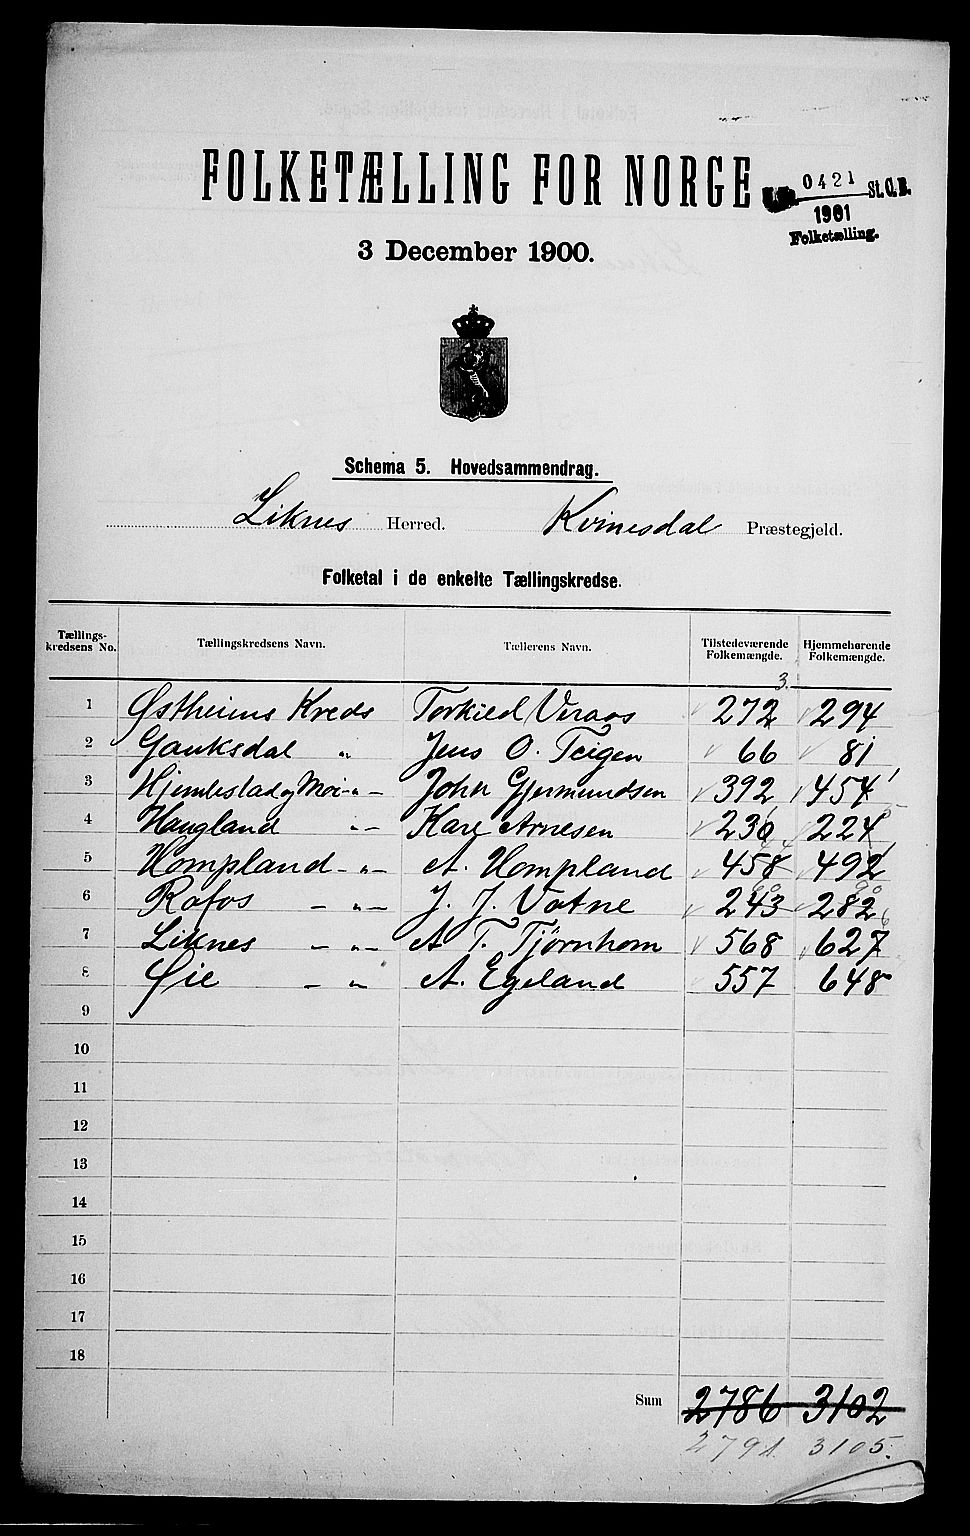 FOLKETÆLLING FOR NORGE
0421 St.C.B.
1901
Folketælling.
3 December 1900.
Schema 5. Hovedsammendrag.
Liknes Herred. Kvinesdal Præstegjeld.
Folketal i de enkelte Tællingskredse.
Tællingskredsens No. Tællingskredsens Navn. Tællerens Navn. Tilstedeværende Folkemængde. Hjemmehørende Folkemængde.
3.
1 Østheims Kreds Torkild Veraas 272 294
2 Gauksdal " Jens O. Teigen 66 81
3 Hjemlestad og Moi -"- John Gjermundsen 392 454
4 Haugland "- Kare Arnesen 230 224
5 Hompland -"- A. Hompland 458 492
6 Rafos -"- J. J. Vatne 243 282
7 Liknes -"- A T. Tjørnhom 568 627
8 Øie - " A. Egeland 557 648
9
10
11
12
13
14
15
16
17
18
Sum 2786 3102
2791 3105.